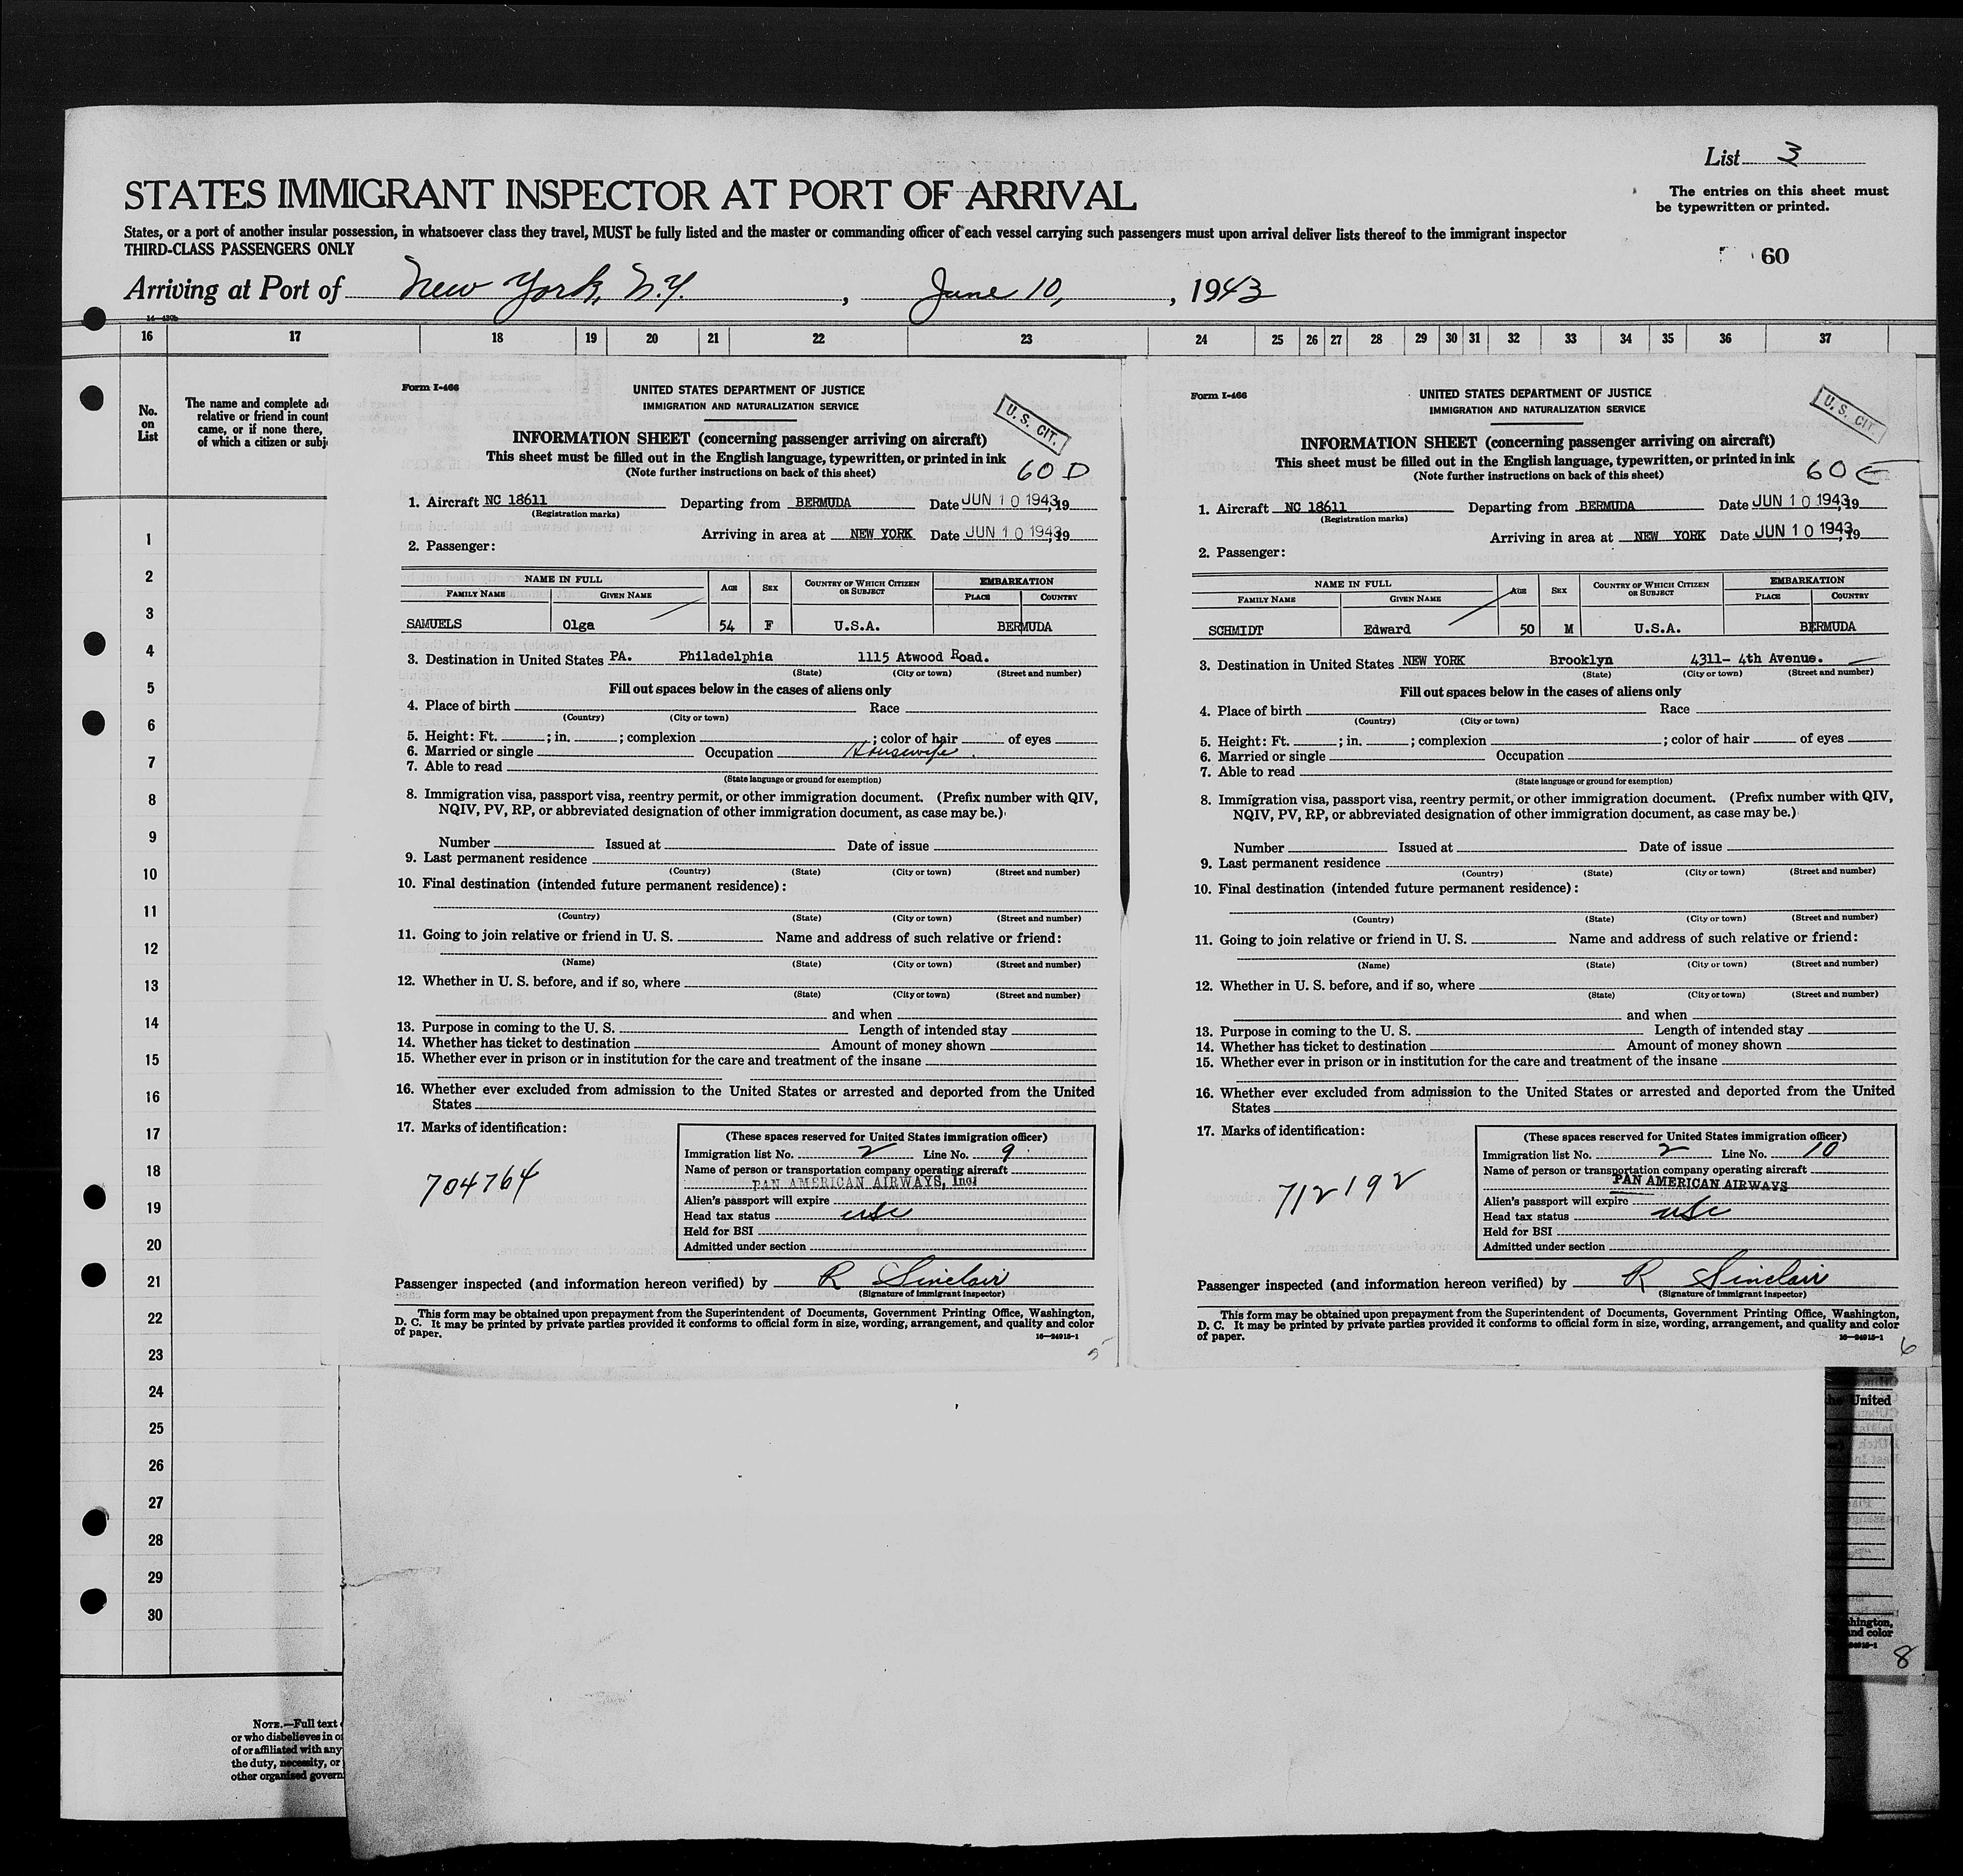 List 3
STATES IMMIGRANT INSPECTOR AT PORT OF ARRIVAL
The entries on this sheet must
be typewritten or printed.
States, or a port of another insular possession, in whatsoever class they travel, MUST be fully listed and the master or commanding officer of each vessel carrying such passengers must upon arrival deliver lists thereof to the immigrant inspector
THIRD-CLASS PASSENGERS ONLY
60
Arriving at Port of New York, N.Y., June 10, 1943
16 17 18 19 20 21 22 23 24 25 26 27 28 29 30 31 32 33 34 35 36 37
No.
on
List
The name and complete ad
relative or friend in count
came, or if none there,
of which a citizen or subj
1
2
3
4
5
6
7
8
9
10
11
12
13
14
15
16
17
18
19
20
21
22
23
24
25
26
27
28
29
30
NOTE.—Full text
or who disbelieves in o
of or affiliated with any
the duty, necessity, or
other organised govern
Form I-466
UNITED STATES DEPARTMENT OF JUSTICE
IMMIGRATION AND NATURALIZATION SERVICE
U. S. CIT.
INFORMATION SHEET (concerning passenger arriving on aircraft)
This sheet must be filled out in the English language, typewritten, or printed in ink
(Note further instructions on back of this sheet)
60 D
1. Aircraft NC 18611 Departing from BERMUDA Date JUN 10 1943, 19
(Registration marks)
Arriving in area at NEW YORK Date JUN 10 1943, 19
2. Passenger:
NAME IN FULL AGE SEX COUNTRY OF WHICH CITIZEN OR SUBJECT EMBARKATION
FAMILY NAME GIVEN NAME PLACE COUNTRY
SAMUELS Olga 54 F U.S.A. BERMUDA
3. Destination in United States PA. Philadelphia 1115 Atwood Road.
(State) (City or town) (Street and number)
Fill out spaces below in the cases of aliens only
4. Place of birth Race
(Country) (City or town)
5. Height: Ft. ; in. ; complexion ; color of hair of eyes
6. Married or single Occupation Housewife.
7. Able to read
(State language or ground for exemption)
8. Immigration visa, passport visa, reentry permit, or other immigration document. (Prefix number with QIV,
NQIV, PV, RP, or abbreviated designation of other immigration document, as case may be.)
Number Issued at Date of issue
9. Last permanent residence
(Country) (State) (City or town) (Street and number)
10. Final destination (intended future permanent residence):
(Country) (State) (City or town) (Street and number)
11. Going to join relative or friend in U. S. Name and address of such relative or friend:
(Name) (State) (City or town) (Street and number)
12. Whether in U. S. before, and if so, where
(State) (City or town) (Street and number)
and when
13. Purpose in coming to the U. S. Length of intended stay
14. Whether has ticket to destination Amount of money shown
15. Whether ever in prison or in institution for the care and treatment of the insane
16. Whether ever excluded from admission to the United States or arrested and deported from the United
States
17. Marks of identification:
704764
(These spaces reserved for United States immigration officer)
Immigration list No. 2 Line No. 9
Name of person or transportation company operating aircraft
PAN AMERICAN AIRWAYS, Inc.
Alien's passport will expire
Head tax status usc
Held for BSI
Admitted under section
Passenger inspected (and information hereon verified) by R Sinclair
(Signature of immigrant inspector)
This form may be obtained upon prepayment from the Superintendent of Documents, Government Printing Office, Washington,
D. C. It may be printed by private parties provided it conforms to official form in size, wording, arrangement, and quality and color
of paper.
16—24915-1
5
Form I-466
UNITED STATES DEPARTMENT OF JUSTICE
IMMIGRATION AND NATURALIZATION SERVICE
U. S. CIT.
INFORMATION SHEET (concerning passenger arriving on aircraft)
This sheet must be filled out in the English language, typewritten, or printed in ink
(Note further instructions on back of this sheet)
60 E
1. Aircraft NC 18611 Departing from BERMUDA Date JUN 10 1943, 19
(Registration marks)
Arriving in area at NEW YORK Date JUN 10 1943, 19
2. Passenger:
NAME IN FULL AGE SEX COUNTRY OF WHICH CITIZEN OR SUBJECT EMBARKATION
FAMILY NAME GIVEN NAME PLACE COUNTRY
SCHMIDT Edward 50 M U.S.A. BERMUDA
3. Destination in United States NEW YORK Brooklyn 4311- 4th Avenue.
(State) (City or town) (Street and number)
Fill out spaces below in the cases of aliens only
4. Place of birth Race
(Country) (City or town)
5. Height: Ft. ; in. ; complexion ; color of hair of eyes
6. Married or single Occupation
7. Able to read
(State language or ground for exemption)
8. Immigration visa, passport visa, reentry permit, or other immigration document. (Prefix number with QIV,
NQIV, PV, RP, or abbreviated designation of other immigration document, as case may be.)
Number Issued at Date of issue
9. Last permanent residence
(Country) (State) (City or town) (Street and number)
10. Final destination (intended future permanent residence):
(Country) (State) (City or town) (Street and number)
11. Going to join relative or friend in U. S. Name and address of such relative or friend:
(Name) (State) (City or town) (Street and number)
12. Whether in U. S. before, and if so, where
(State) (City or town) (Street and number)
and when
13. Purpose in coming to the U. S. Length of intended stay
14. Whether has ticket to destination Amount of money shown
15. Whether ever in prison or in institution for the care and treatment of the insane
16. Whether ever excluded from admission to the United States or arrested and deported from the United
States
17. Marks of identification:
712192
(These spaces reserved for United States immigration officer)
Immigration list No. 2 Line No. 10
Name of person or transportation company operating aircraft
PAN AMERICAN AIRWAYS
Alien's passport will expire
Head tax status usc
Held for BSI
Admitted under section
Passenger inspected (and information hereon verified) by R Sinclair
(Signature of immigrant inspector)
This form may be obtained upon prepayment from the Superintendent of Documents, Government Printing Office, Washington,
D. C. It may be printed by private parties provided it conforms to official form in size, wording, arrangement, and quality and color
of paper.
16—24915-1
6
the United
hington,
and color
24915-1
8